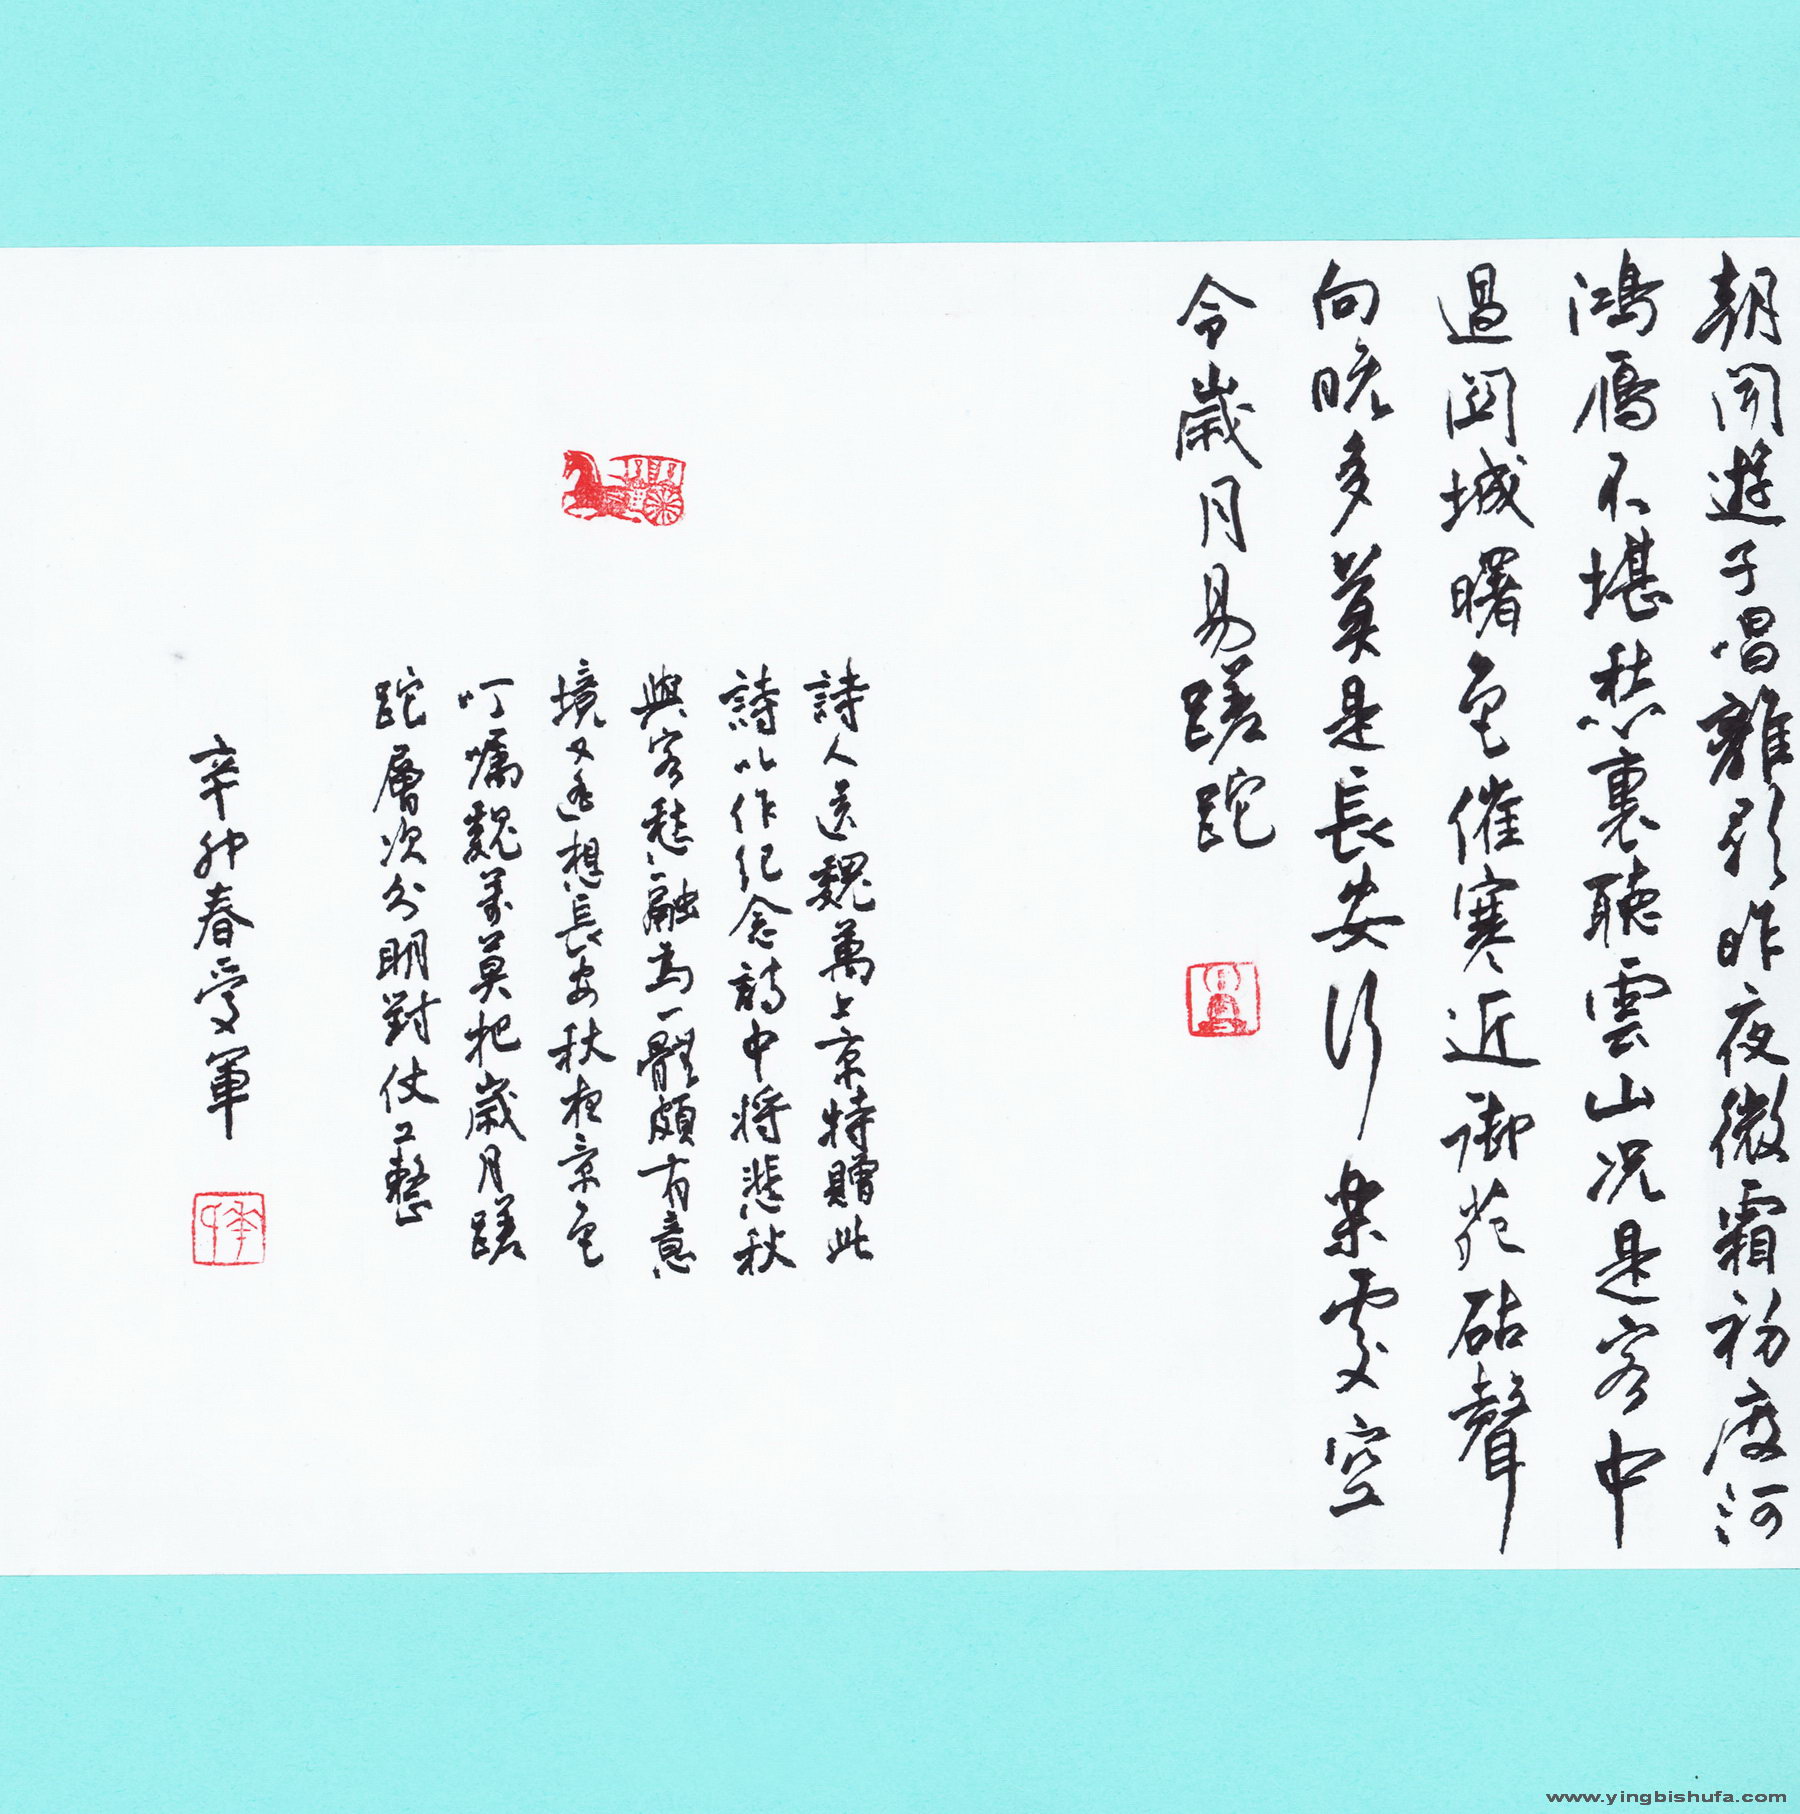 朝聞遊子唱離歌昨夜微霜初度河
鴻鴈不堪愁裏聽雲山况是客中
過関城曙色催寒近御苑砧聲
向晚多莫是長安行樂處空
令歲月易蹉跎
詩人送魏萬上京特贈此
詩以作紀念詩中將悲秋
與客愁融為一體頗有意
境又遥想長安秋夜景色
叮嘱魏萬莫把歲月蹉
跎層次分明對仗工整
辛卯春受軍
www.yingbishufa.com